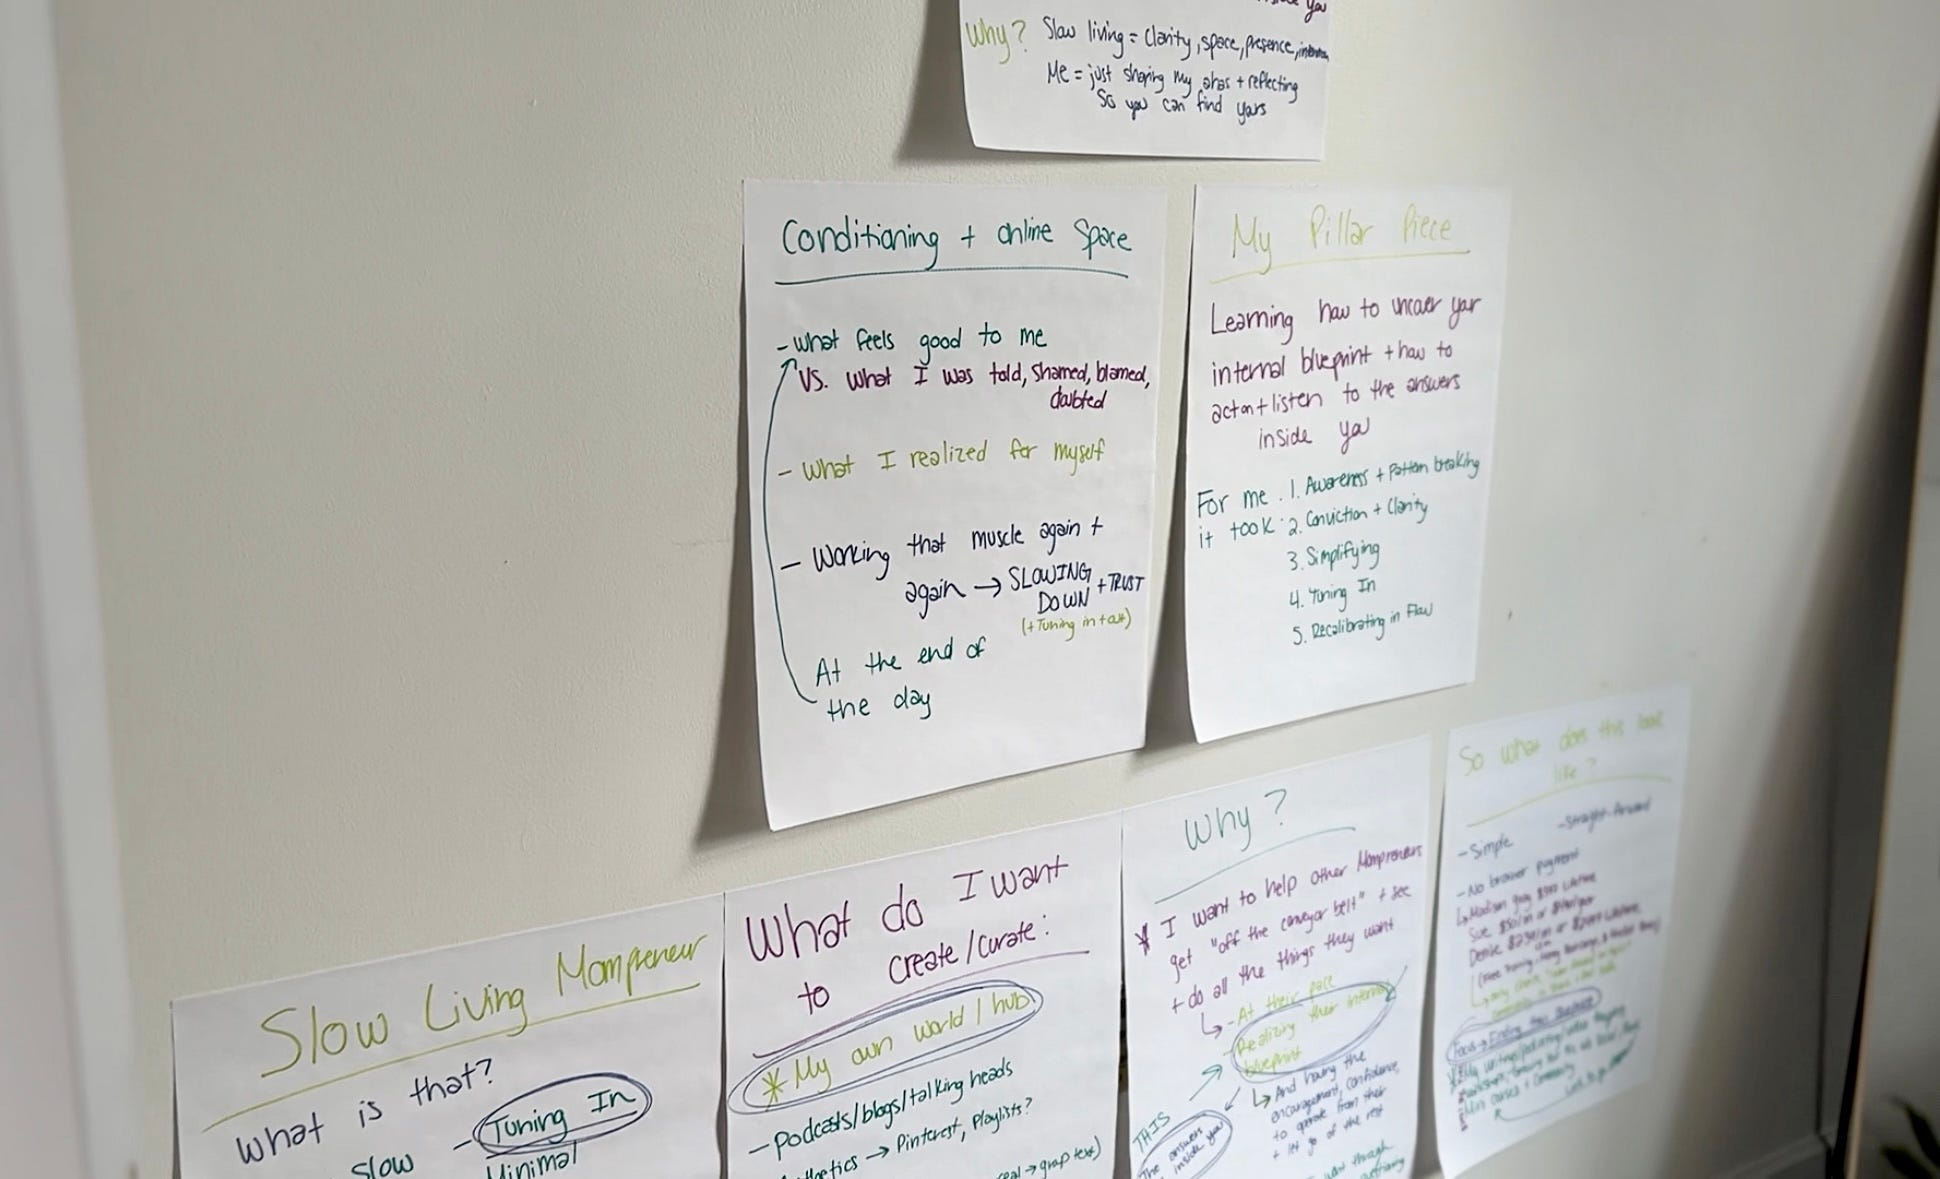 you
Why? Slow living = Clarity, space, presence,
Me = just sharing my ahas + reflecting
So you can find yours
Conditioning + online Space
- What feels good to me
Vs. what I was told, shamed, blamed,
doubted
- What I realized for myself
- Working that muscle again +
again → SLOWING DOWN + TRUST
(+ Tuning in + out)
At the end of
the day
My Pillar Piece
Learning how to uncover your
internal blueprint + how to
act on + listen to the answers
inside you
For me it took: 1. Awareness + pattern breaking
2. Conviction + Clarity
3. Simplifying
4. Tuning In
5. Recalibrating in Flow
Slow Living Mompreneur
What is that?
- Tuning In
Slow
Minimal
What do I want
to create/curate:
* My own world/hub
- Podcasts/blogs/talking heads
→ Pinterest, Playlists?
→ graph text)
Why?
* I want to help other Mompreneurs
get "off the conveyor belt" + see
+ do all the things they want
↳ - At their pace
- Realizing their internal
blueprint
↳ And having the
encouragement, confidence,
to operate from their
+ let go of the rest
THIS
The answers
inside you
through
So what does this look
like?
- Simple
- Straight-forward
- No brainer payment